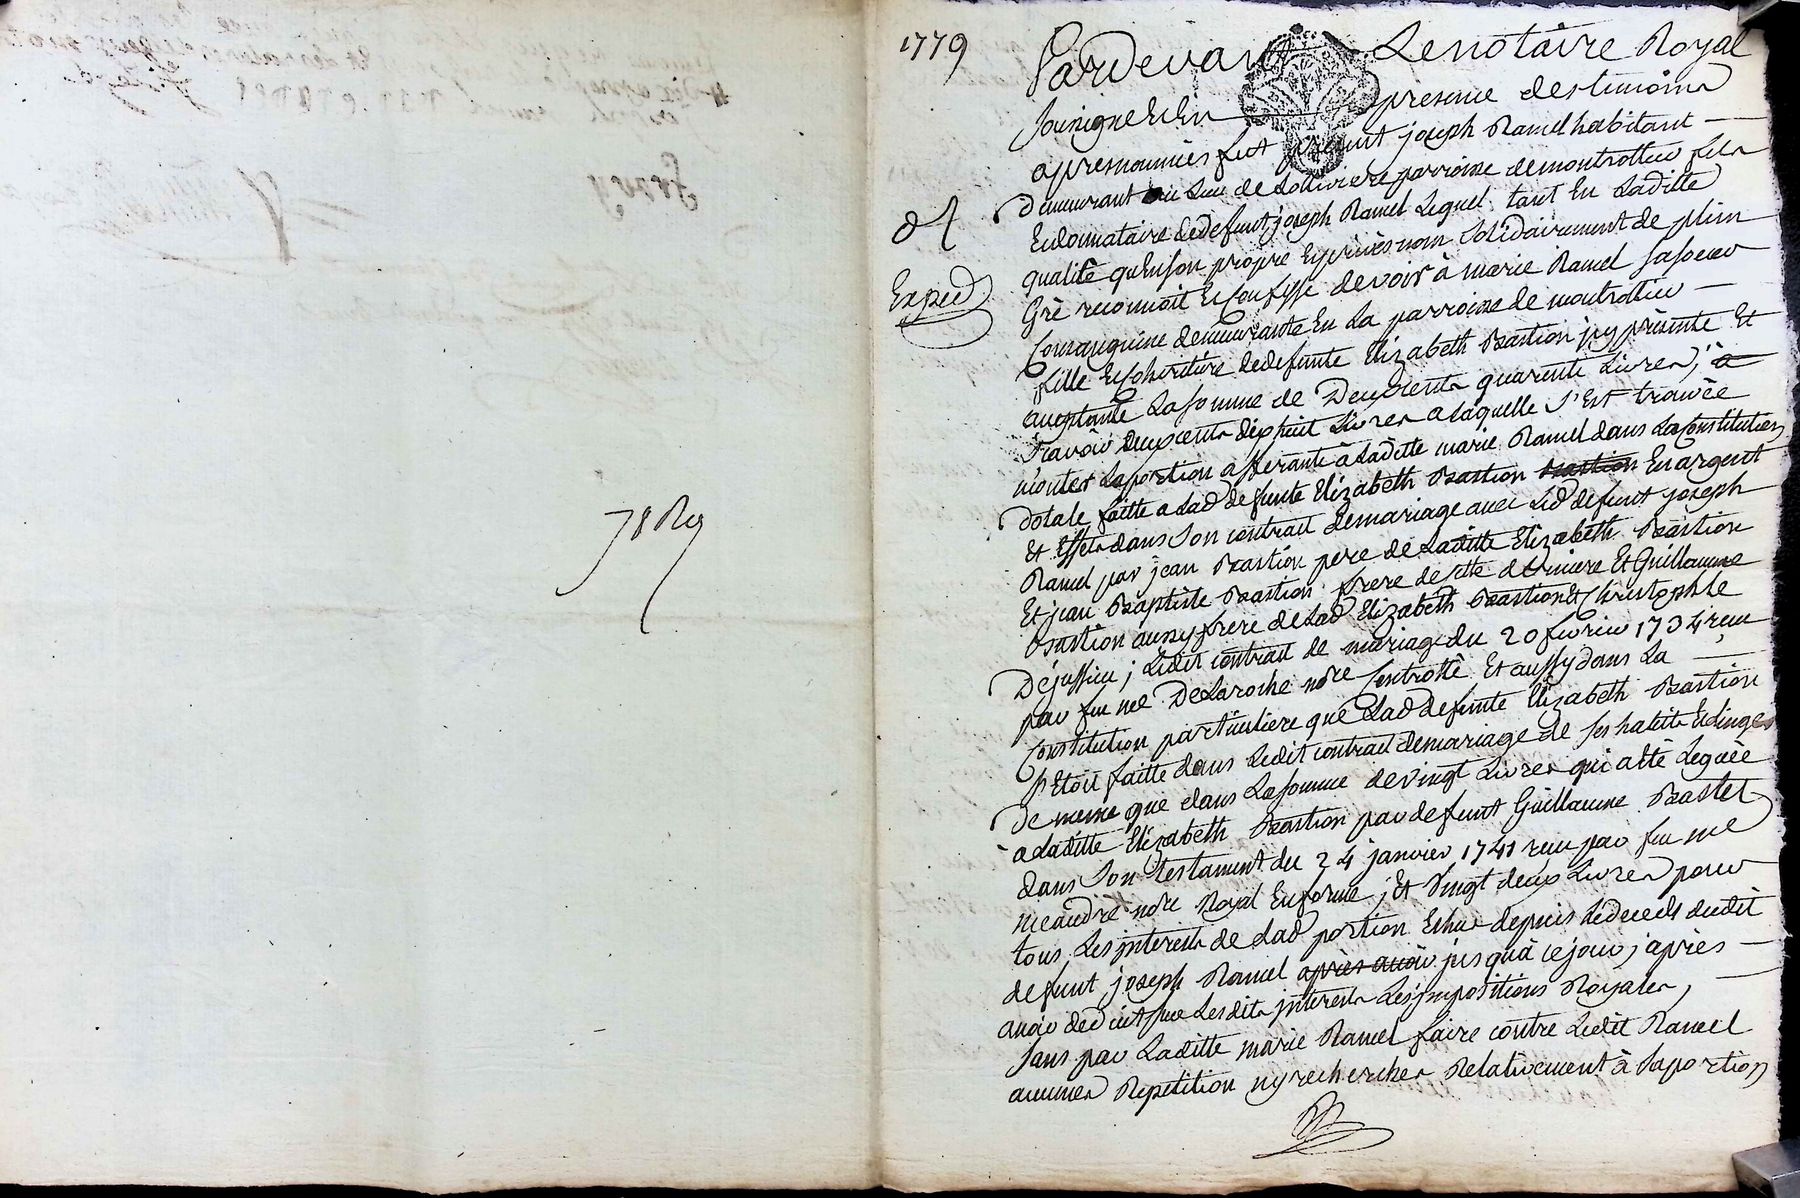 1779
Pardevant Le notaire Royal
soussigné Et En presence des temoins
apres nommés fut présent joseph Ramel habitant
Demeurant au Lieu de parroisse de montrottier fils
Et donnataire de defunt joseph Ramel Lequel tant En Laditte
qualité qu'En son propre Et privés nom solidairement de plein
Gré reconnoit Et Confesse devoir à marie Ramel sa soeur
Consanguine demeurante En La parroisse de montrottier
fille Et Coheritiere de defunte Elizabeth Bastion jcy présente Et
acceptante La somme de Deux cents quarente Livres, a
sçavoir deux cents dix huit Livres a laquelle s'Est trouvée
monter La portion afferante à Laditte marie Ramel dans La Constitution
dotale faitte a lad defunte Elizabeth Bastion Bastion En argent
Et Effets dans son contrait de mariage avec Led defunt joseph
Ramel par jean Bastion pere de Laditte Elizabeth Bastion
Et jean Baptiste Bastion frere de cette derniere Et Guillaume
Bastion aussy frere de Lad Elizabeth Bastion Et Christophle
Dejussieu ; Ledit contrait de mariage du 20 fevrier 1734 reçu
par feu me DeLaroche nore Controllé Et aussy dans La
Constitution particuliere que Lad defunte Elizabeth Bastion
s'Etoit faitte dans Ledit contrait de mariage de ses habits Et linges
De meme que dans La somme de vingt Livres qui a Eté Leguée
a Laditte Elizabeth Bastion par defunt Guillaume Bastet
dans son testament du 24 janvier 1741 reçu par feu me
meaudre nore Royal En forme ; Et Vingt deux Livres pour
tous Les jnterests de Lad portion Echus depuis Le deceds dudit
defunt joseph Ramel apres avoir jusqu'à ce jour ; après
avoir deduit sur Lesdits jnterests Les jmpositions Royales,
sans par Laditte marie Ramel faire contre Ledit Ramel
aucunes Repetition ny recherches Relativement à La portion
Exped